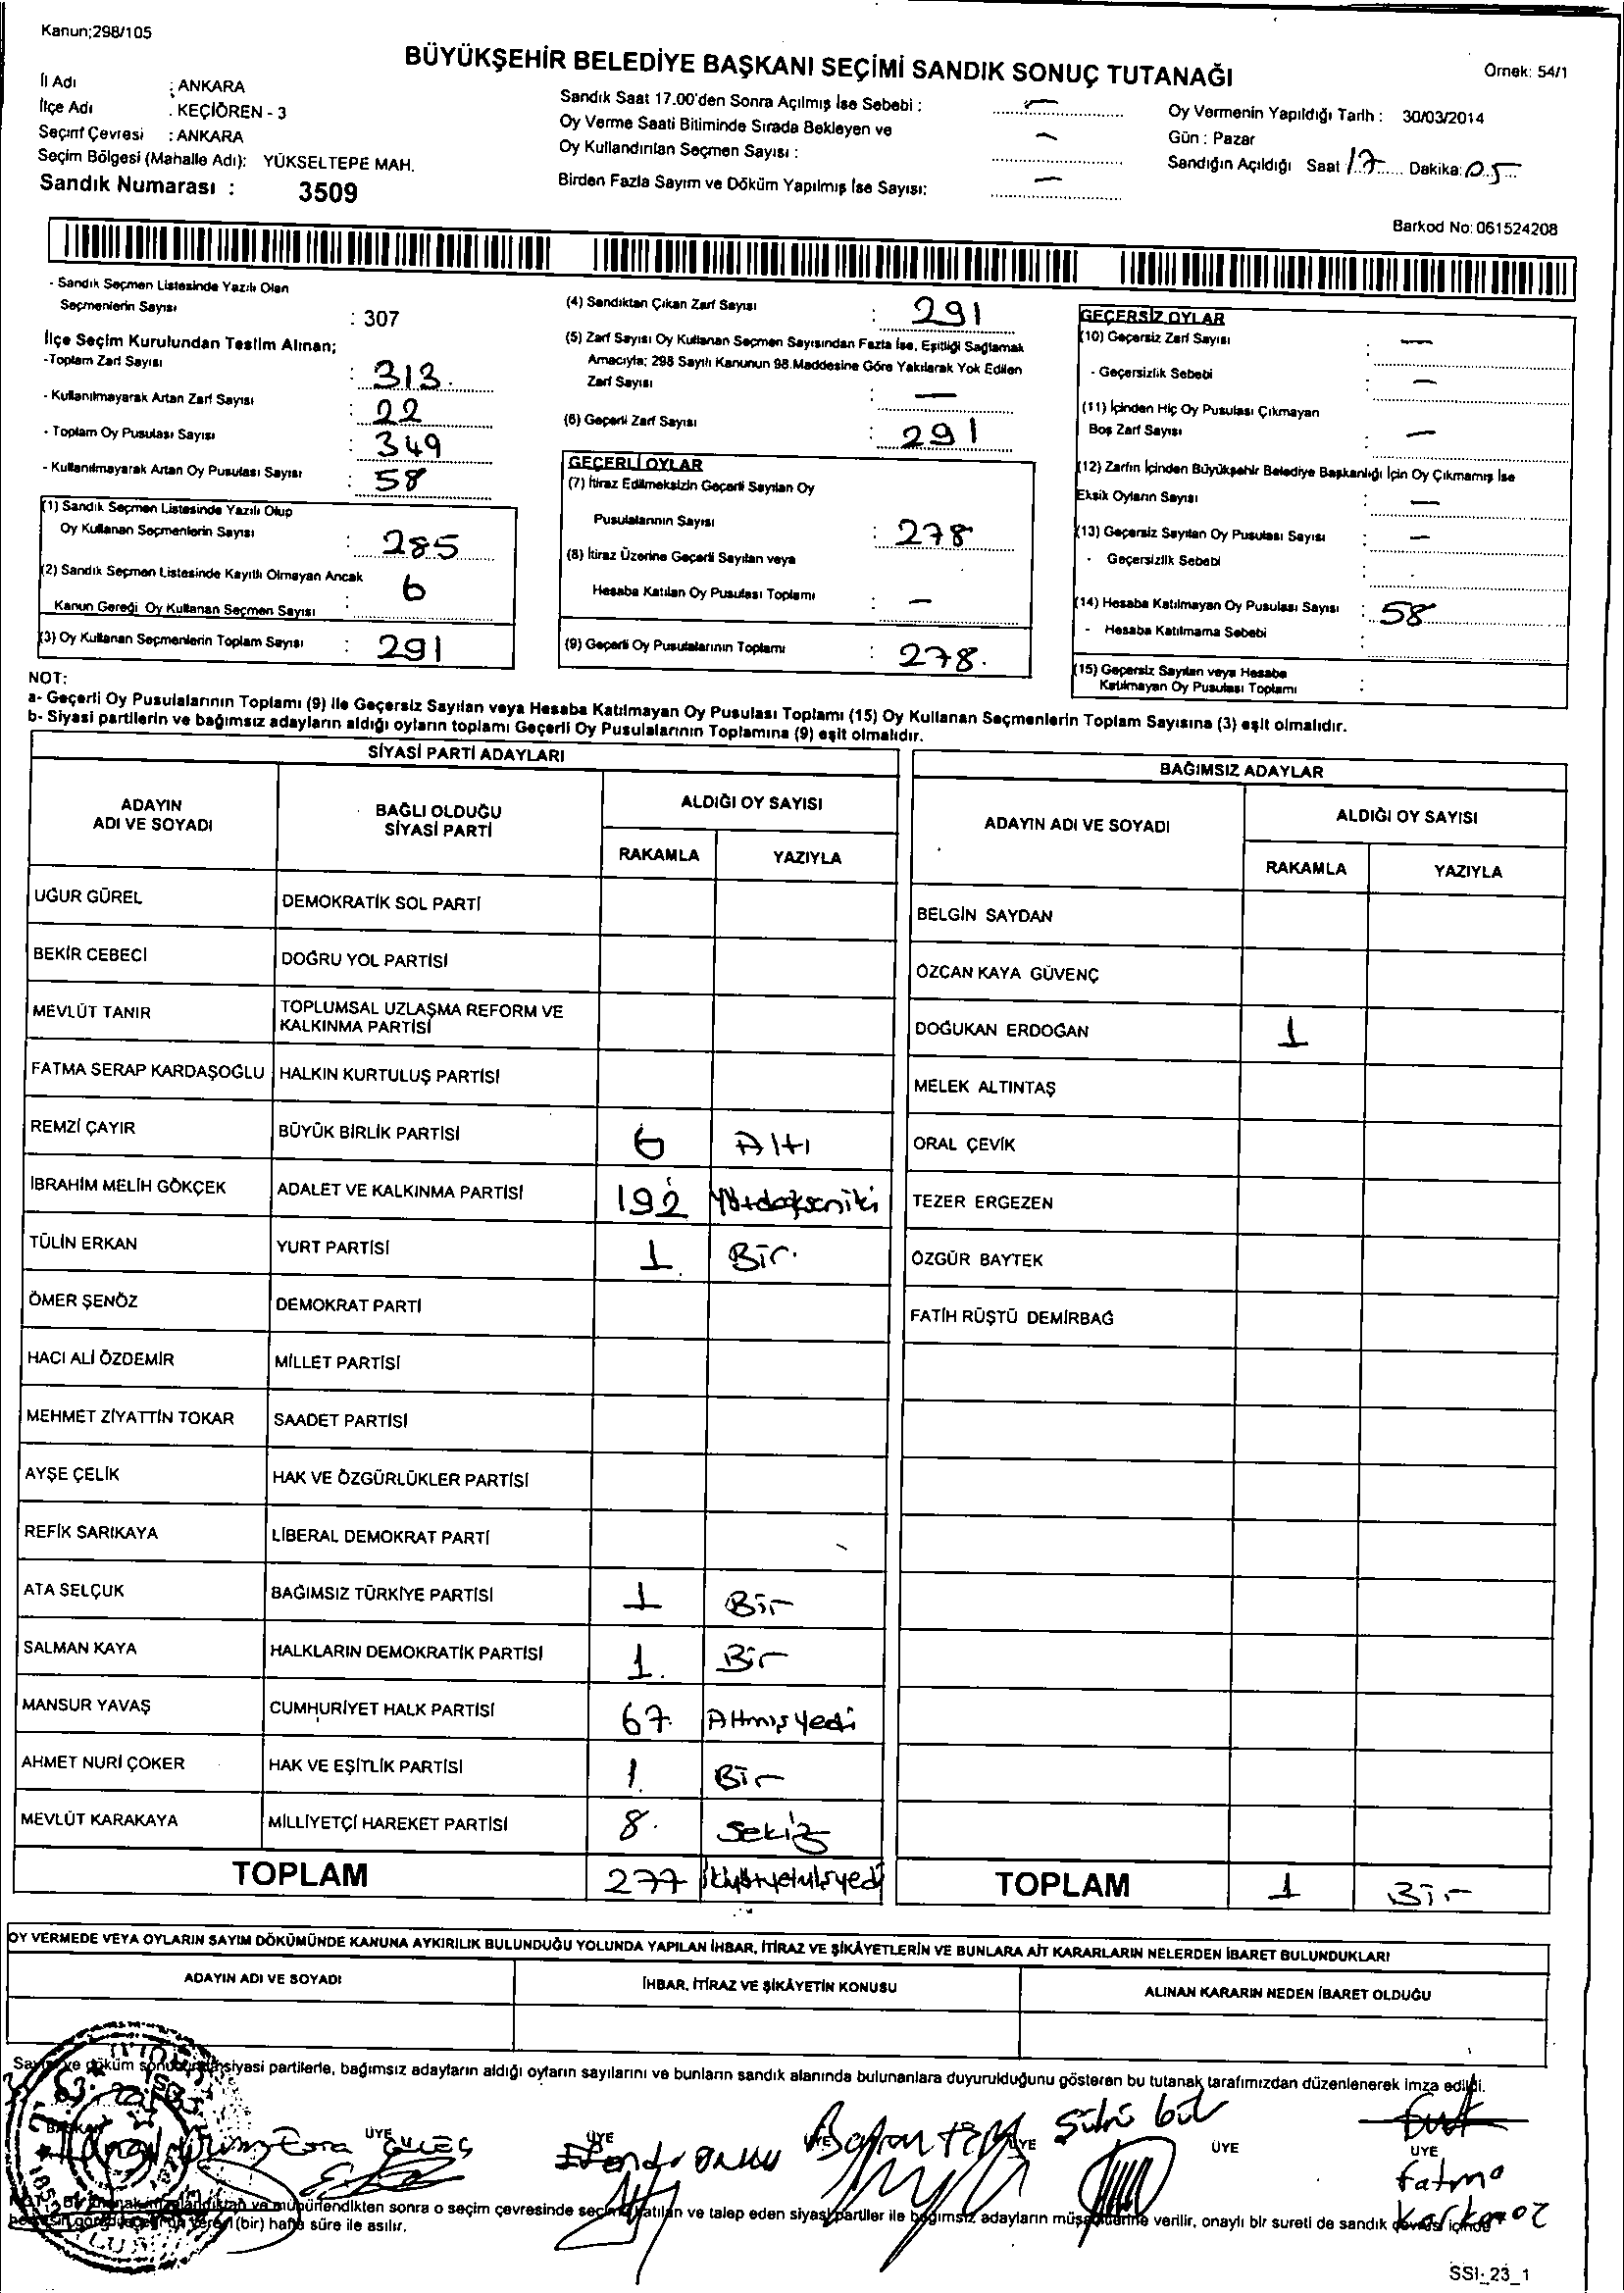 Kanun;298/105
BÜYÜKŞEHİR BELEDİYE BAŞKANI SEÇİMİ SANDIK SONUÇ TUTANAĞI
Örnek: 54/1
İl Adı : ANKARA
İlçe Adı : KEÇİÖREN - 3
Seçim Çevresi : ANKARA
Seçim Bölgesi (Mahalle Adı): YÜKSELTEPE MAH.
Sandık Numarası : 3509
Sandık Saat 17.00'den Sonra Açılmış İse Sebebi : —
Oy Verme Saati Bitiminde Sırada Bekleyen ve
Oy Kullandırılan Seçmen Sayısı : —
Birden Fazla Sayım ve Döküm Yapılmış İse Sayısı: —
Oy Vermenin Yapıldığı Tarih : 30/03/2014
Gün : Pazar
Sandığın Açıldığı Saat 17 Dakika: 05
Barkod No: 061524208
- Sandık Seçmen Listesinde Yazılı Olan
Seçmenlerin Sayısı : 307
İlçe Seçim Kurulundan Teslim Alınan;
-Toplam Zarf Sayısı : 313
- Kullanılmayarak Artan Zarf Sayısı : 22
- Toplam Oy Pusulası Sayısı : 349
- Kullanılmayarak Artan Oy Pusulası Sayısı : 58
(1) Sandık Seçmen Listesinde Yazılı Olup
Oy Kullanan Seçmenlerin Sayısı : 285
(2) Sandık Seçmen Listesinde Kayıtlı Olmayan Ancak
Kanun Gereği Oy Kullanan Seçmen Sayısı : 6
(3) Oy Kullanan Seçmenlerin Toplam Sayısı : 291
(4) Sandıktan Çıkan Zarf Sayısı : 291
(5) Zarf Sayısı Oy Kullanan Seçmen Sayısından Fazla İse, Eşitliği Sağlamak
Amacıyla; 298 Sayılı Kanunun 98.Maddesine Göre Yakılarak Yok Edilen
Zarf Sayısı : —
(6) Geçerli Zarf Sayısı : 291
GEÇERLİ OYLAR
(7) İtiraz Edilmeksizin Geçerli Sayılan Oy
Pusulalarının Sayısı : 278
(8) İtiraz Üzerine Geçerli Sayılan veya
Hesaba Katılan Oy Pusulası Toplamı : —
(9) Geçerli Oy Pusulalarının Toplamı : 278.
GEÇERSİZ OYLAR
(10) Geçersiz Zarf Sayısı : —
- Geçersizlik Sebebi : —
(11) İçinden Hiç Oy Pusulası Çıkmayan
Boş Zarf Sayısı : —
(12) Zarfın İçinden Büyükşehir Belediye Başkanlığı İçin Oy Çıkmamış İse
Eksik Oyların Sayısı : —
(13) Geçersiz Sayılan Oy Pusulası Sayısı : —
- Geçersizlik Sebebi :
(14) Hesaba Katılmayan Oy Pusulası Sayısı : 58
- Hesaba Katılmama Sebebi :
(15) Geçersiz Sayılan veya Hesaba
Katılmayan Oy Pusulası Toplamı :
NOT:
a- Geçerli Oy Pusulalarının Toplamı (9) ile Geçersiz Sayılan veya Hesaba Katılmayan Oy Pusulası Toplamı (15) Oy Kullanan Seçmenlerin Toplam Sayısına (3) eşit olmalıdır.
b- Siyasi partilerin ve bağımsız adayların aldığı oyların toplamı Geçerli Oy Pusulalarının Toplamına (9) eşit olmalıdır.
SİYASİ PARTİ ADAYLARI
ADAYIN ADI VE SOYADI BAĞLI OLDUĞU SİYASİ PARTİ ALDIĞI OY SAYISI
RAKAMLA YAZIYLA
UĞUR GÜREL DEMOKRATİK SOL PARTİ
BEKİR CEBECİ DOĞRU YOL PARTİSİ
MEVLÜT TANIR TOPLUMSAL UZLAŞMA REFORM VE KALKINMA PARTİSİ
FATMA SERAP KARDAŞOĞLU HALKIN KURTULUŞ PARTİSİ
REMZİ ÇAYIR BÜYÜK BİRLİK PARTİSİ 6 Altı
İBRAHİM MELİH GÖKÇEK ADALET VE KALKINMA PARTİSİ 192 Yüzdoksaniki
TÜLİN ERKAN YURT PARTİSİ 1 Bir.
ÖMER ŞENÖZ DEMOKRAT PARTİ
HACI ALİ ÖZDEMİR MİLLET PARTİSİ
MEHMET ZİYATTİN TOKAR SAADET PARTİSİ
AYŞE ÇELİK HAK VE ÖZGÜRLÜKLER PARTİSİ
REFİK SARIKAYA LİBERAL DEMOKRAT PARTİ
ATA SELÇUK BAĞIMSIZ TÜRKİYE PARTİSİ 1 Bir
SALMAN KAYA HALKLARIN DEMOKRATİK PARTİSİ 1. Bir
MANSUR YAVAŞ CUMHURİYET HALK PARTİSİ 67. Altmışyedi
AHMET NURİ ÇOKER HAK VE EŞİTLİK PARTİSİ 1. Bir
MEVLÜT KARAKAYA MİLLİYETÇİ HAREKET PARTİSİ 8. Sekiz
TOPLAM 277
BAĞIMSIZ ADAYLAR
ADAYIN ADI VE SOYADI ALDIĞI OY SAYISI
RAKAMLA YAZIYLA
BELGİN SAYDAN
ÖZCAN KAYA GÜVENÇ
DOĞUKAN ERDOĞAN 1
MELEK ALTINTAŞ
ORAL ÇEVİK
TEZER ERGEZEN
ÖZGÜR BAYTEK
FATİH RÜŞTÜ DEMİRBAĞ
TOPLAM 1 Bir
OY VERMEDE VEYA OYLARIN SAYIM DÖKÜMÜNDE KANUNA AYKIRILIK BULUNDUĞU YOLUNDA YAPILAN İHBAR, İTİRAZ VE ŞİKÂYETLERİN VE BUNLARA AİT KARARLARIN NELERDEN İBARET BULUNDUKLARI
ADAYIN ADI VE SOYADI İHBAR, İTİRAZ VE ŞİKÂYETİN KONUSU ALINAN KARARIN NEDEN İBARET OLDUĞU
siyasi partilerle, bağımsız adayların aldığı oyların sayılarını ve bunların sandık alanında bulunanlara duyurulduğunu gösteren bu tutanak tarafımızdan düzenlenerek imza edildi.
BAŞKAN ÜYE ÜYE ÜYE ÜYE ÜYE ÜYE
Esra
Fatma
sonra o seçim çevresinde seçime katılan ve talep eden siyasi partiler ile bağımsız adayların müşahitlerine verilir, onaylı bir sureti de sandık çevresi içinde
(bir) hafta süre ile asılır.
SSI_23_1